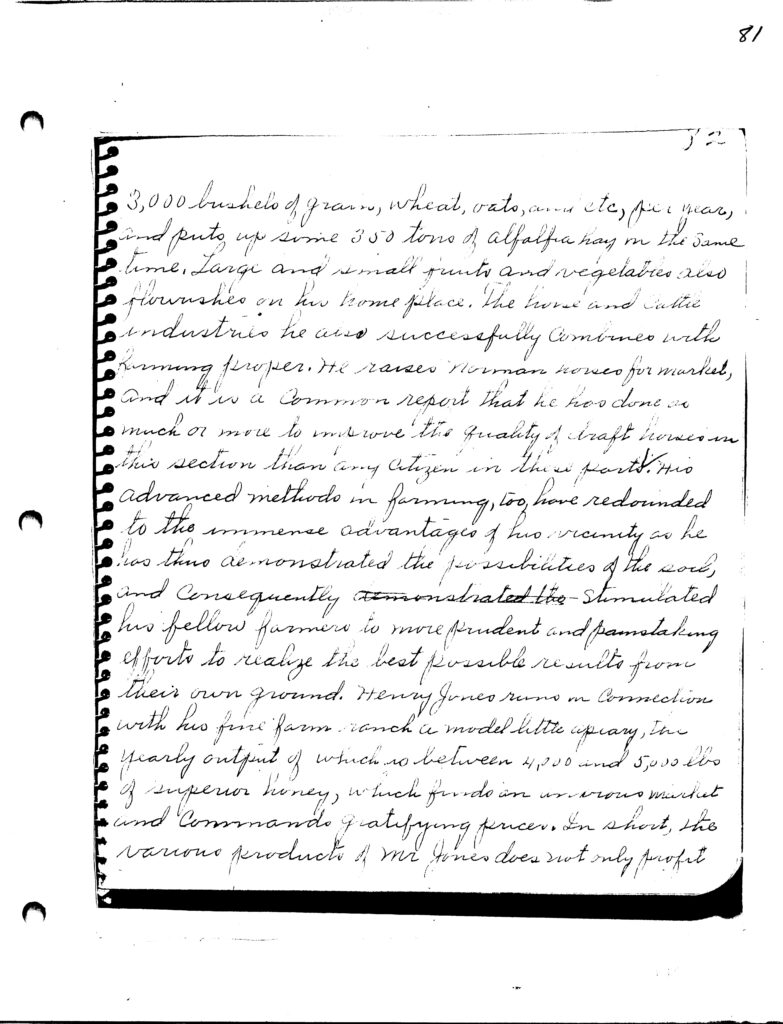 81
52
3,000 bushels of grain, wheat, oats, and etc, per year,
and puts up some 350 tons of alfalfia hay in the same
time. Large and small fruits and vegetables also
flourishes on his home place. The horse and cattle
industries he also successfully combines with
farming proper. He raises Norman horses for market,
and it is a common report that he has done as
much or more to improve the quality of draft horses in
this section than any citizen in these parts. His
advanced methods in farming, too, have redounded
to the immense advantages of his vicinity as he
has thus demonstrated the possibilities of the soil,
and consequently demonstrated the - stimulated
his fellow farmers to more prudent and painstaking
efforts to realize the best possible results from
their own ground. Henry Jones runs in connection
with his fine farm ranch a model little apiary, the
yearly output of which is between 4,000 and 5,000 lbs
of superior honey, which finds an market
and commands gratifying prices. In short, the
various products of Mr Jones does not only profit